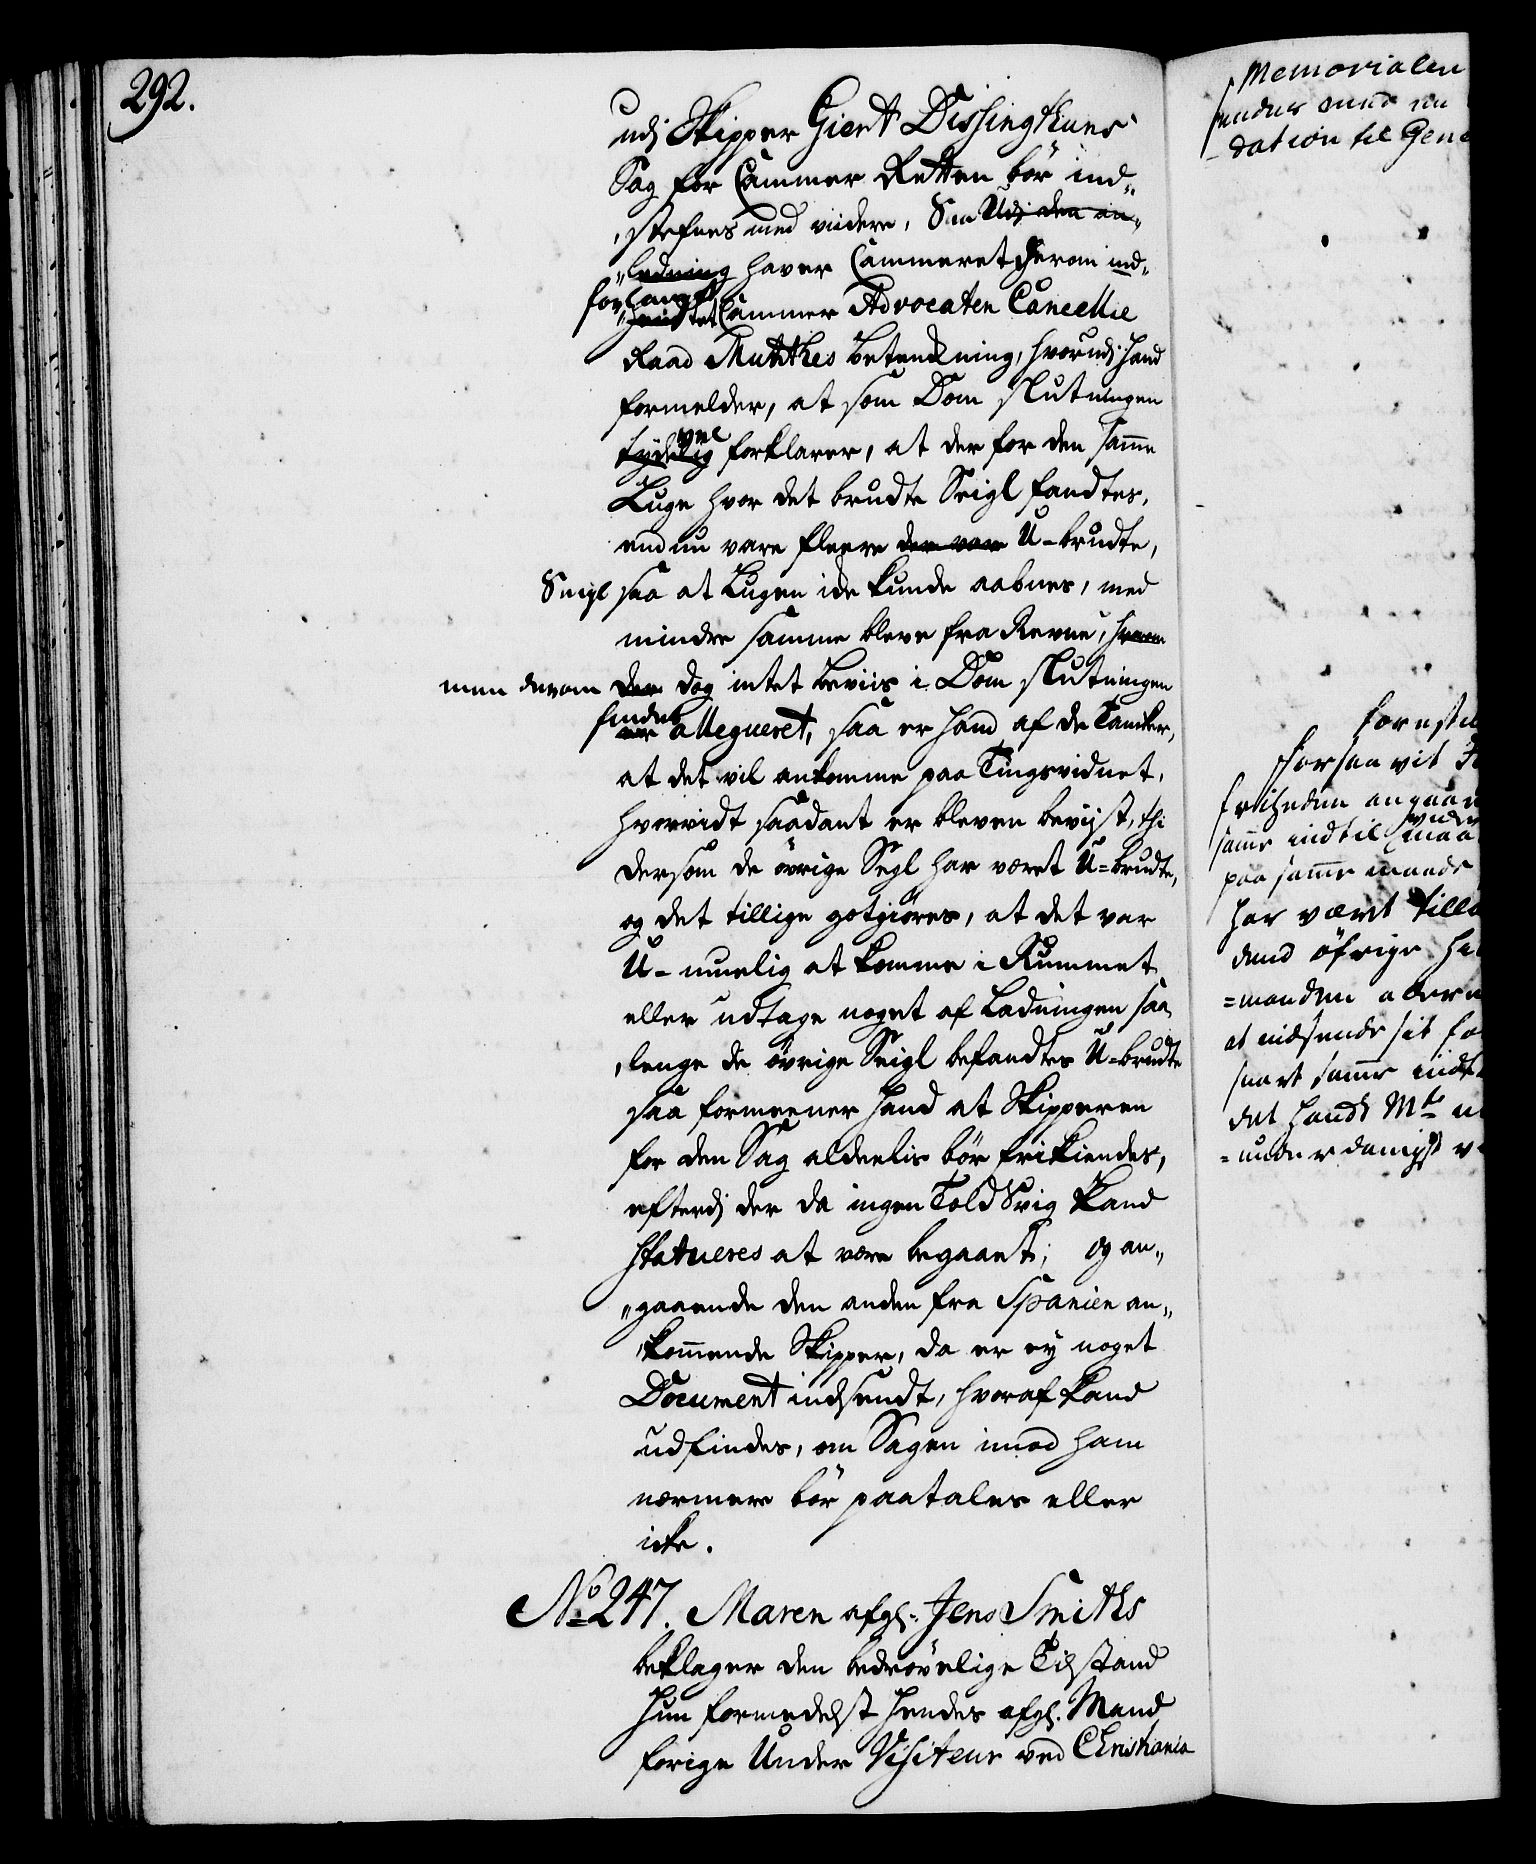 292.
udj Skipper Giert Dissingthuns
Sag for Cammer Retten bör ind„
„stefnes med videre, Saa Udj den an„
„ledning haver Cammeret herom ind„
forlangt
„hendtet Cammer Advocaten Cancellie
Raad Mutthes betenkning, hvorudj hand
formelder, at som Dom slutningen
vel
tydelig forklarer, at der for den samme
Luge hvor det brudte Seigl fandtes,
endnu vare fleere der vare U-brudte,
Seigl saa at Lugen icke kunde aabnes, med
mindre samme bleve fra Revne, hvorom
men derom der dog intet beviis i Dom slutningen
findes
er allegueret, saa er hand af de Tancker,
at det vil ankomme paa Tingsvidnet,
hvorvidt saadant er bleven bevijst, thi
dersom de övrige Segl har været U=brudte,
og det tillige gotgiöres, at det var
U-muelig at komme i Rummet
eller udtage noget af Ladningen saa
„lenge de övrige Seigl befandtes U=brudte
saa formeener hand at Skipperen
for den Sag aldeelis bör frikiendes,
efterdj der da ingen Told Svig kand
statueres at være begaaet; og an„
„gaaende den anden fra Spanien an„
„kommende Skipper, da er ey noget
Document indsendt, hvoraf kand
udfindes, om Sagen imod ham
nærmere bör paatales eller
icke.
No 247. Maren afgl: Jens Smiths
beklager den bedrövelige Tilstand
hun formedelst hendes afgl. Mand
forige Under Visiteur ved Christiania
Memorialen
sendes med en
dation til Gene
forestil
forsaavit
friheden angaaen
samme indtil maa
paa samme maade
har været tilla
dend öfrige
=manden
at indsende sit
snart samme indt
det hands Mts
=underdanigst